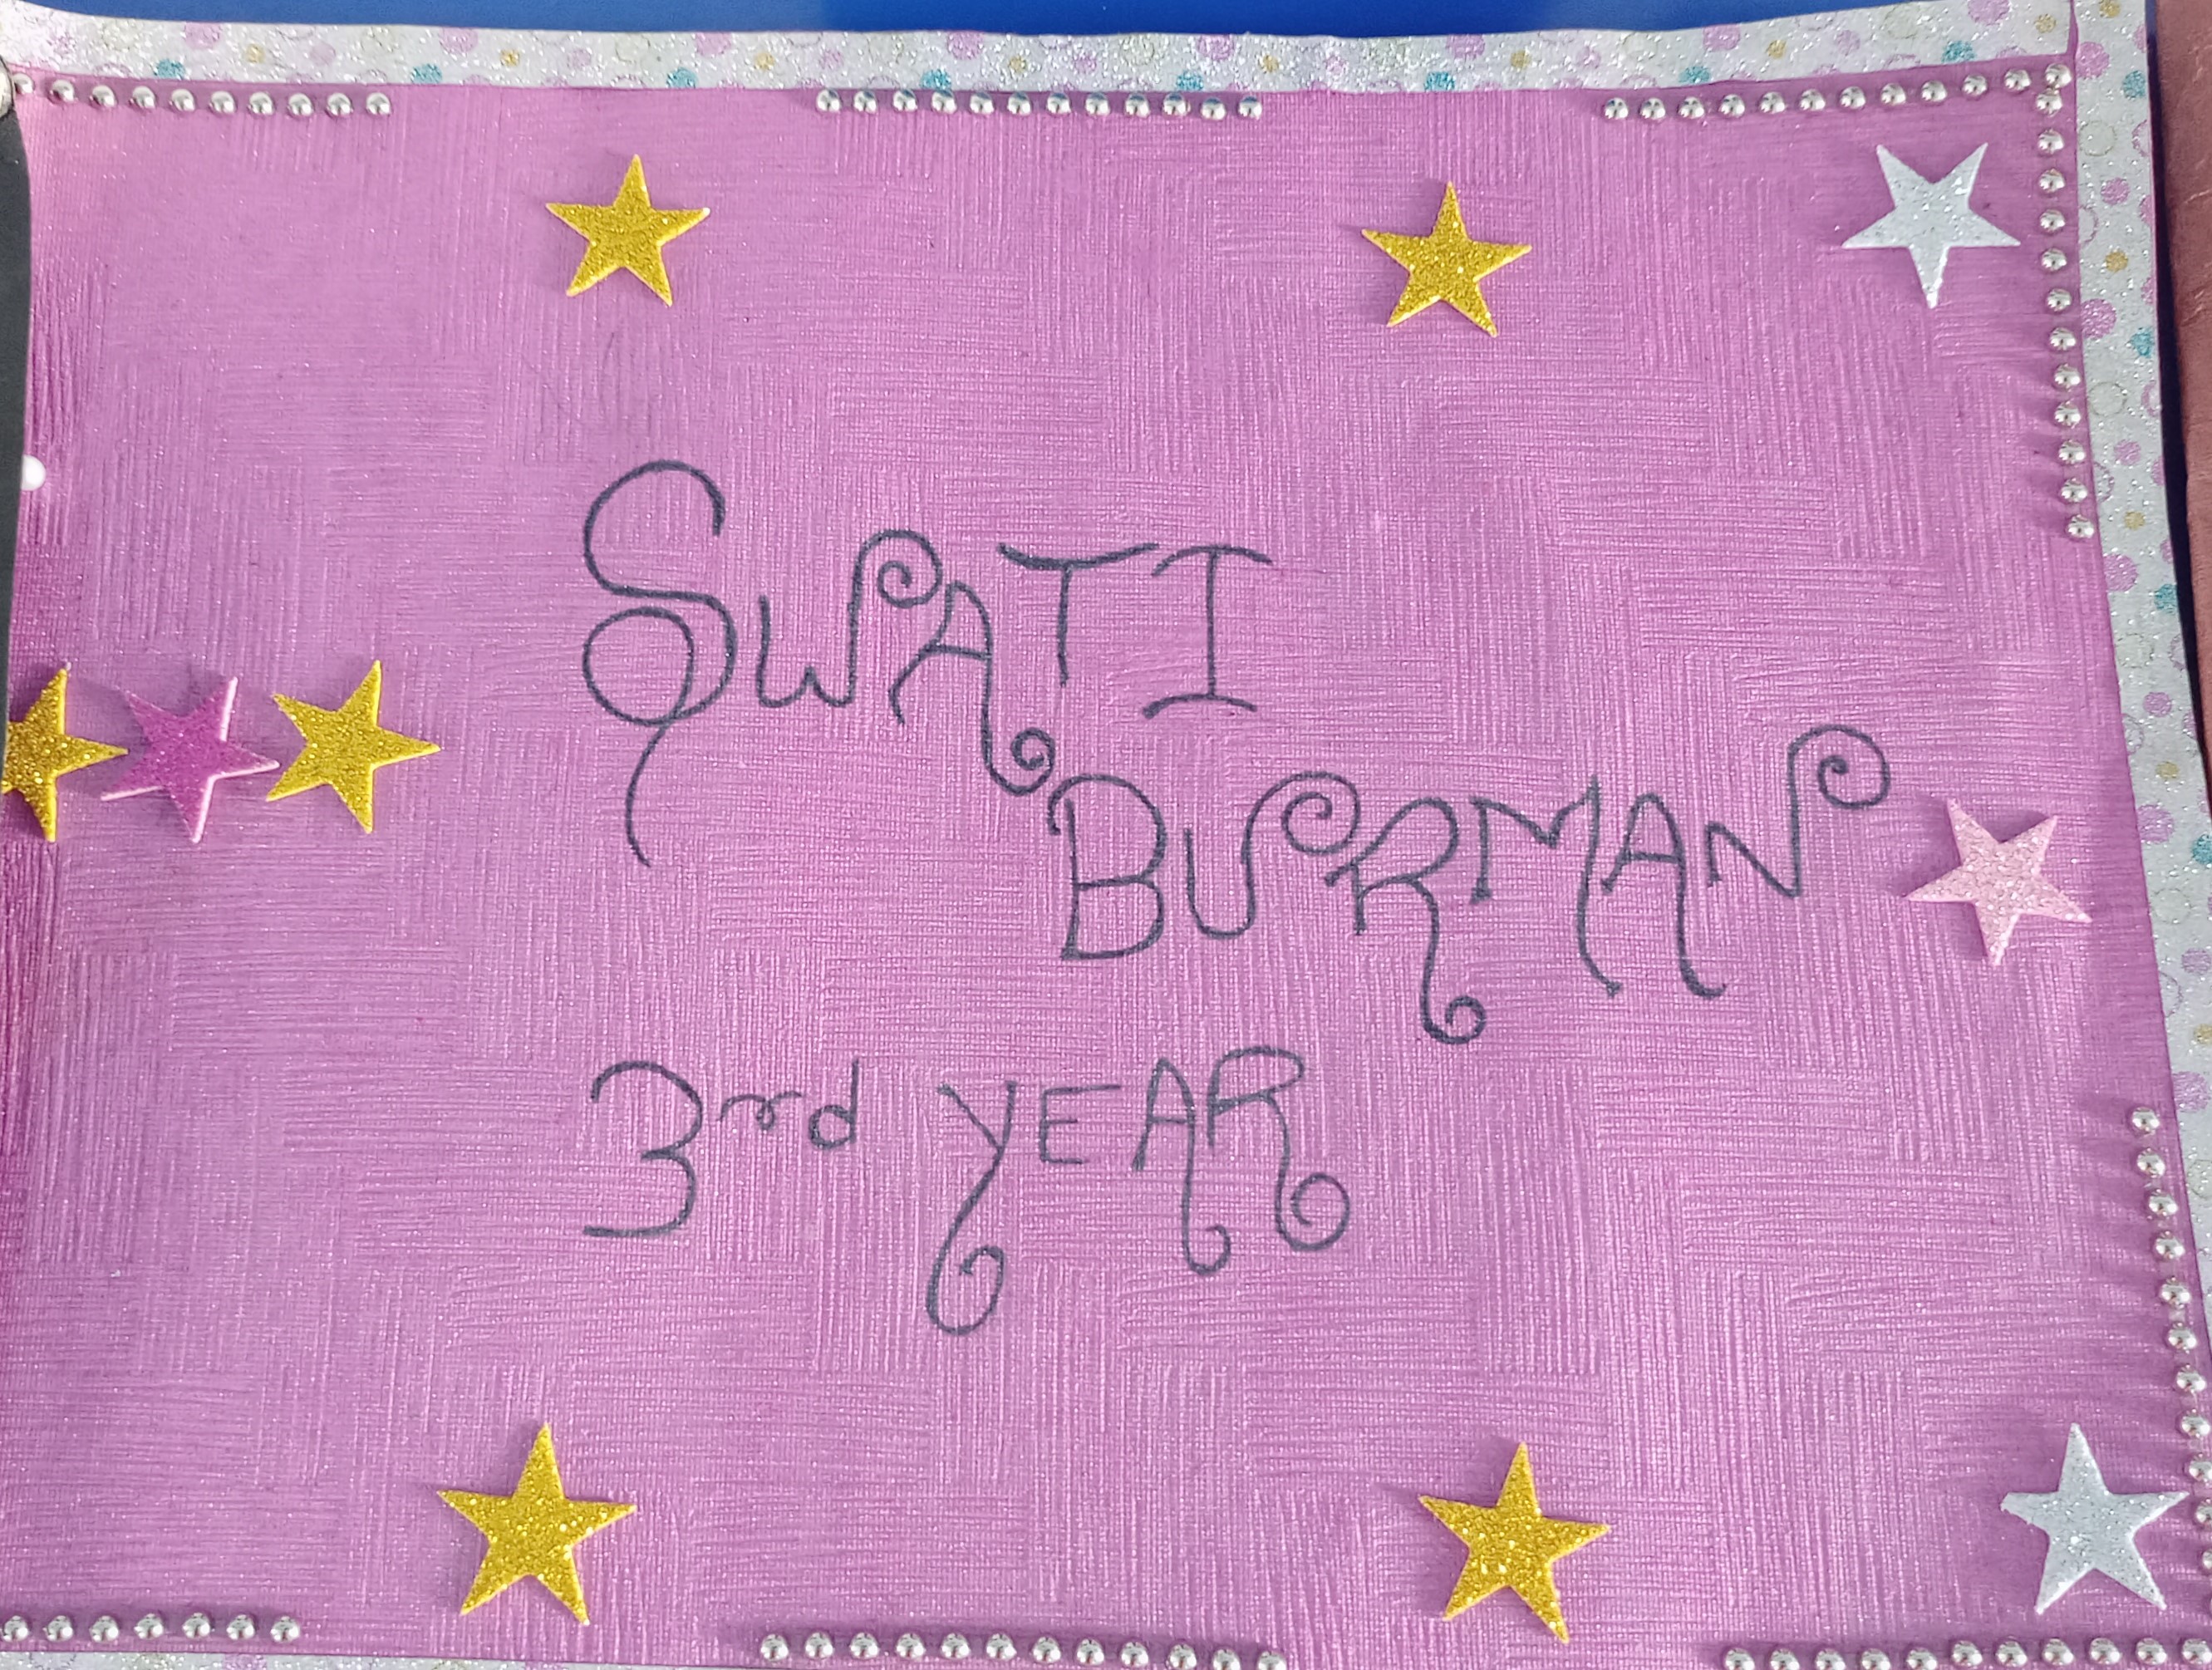 SWATI
BURMAN
3rd YEAR